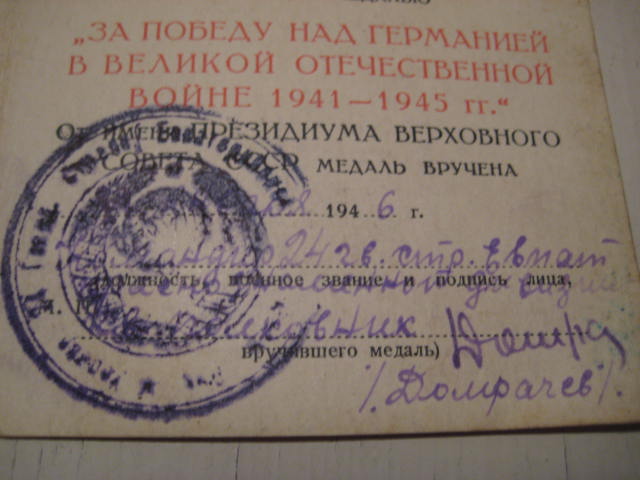 „ЗА ПОБЕДУ НАД ГЕРМАНИЕЙ
В ВЕЛИКОЙ ОТЕЧЕСТВЕННОЙ
ВОЙНЕ 1941—1945 гг.“
От имени ПРЕЗИДИУМА ВЕРХОВНОГО
СОВЕТА СССР МЕДАЛЬ ВРУЧЕНА
1946 г.
Командир 24 гв. стр. Евпат
(должность, военное звание и подпись лица,
М. П.
Полковник
вручившего медаль)
/Домрачев/.